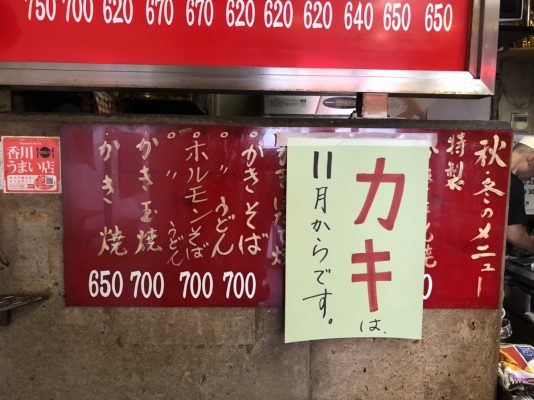 750 700 620 670 670 620 620 620 640 650 650
秋・冬のメニュー
特製
カキは、
11月からです。
かきそば
〃 うどん
ホルモンそば
〃 うどん
かき玉焼
かき焼
650 700 700 700
香川
うまい店